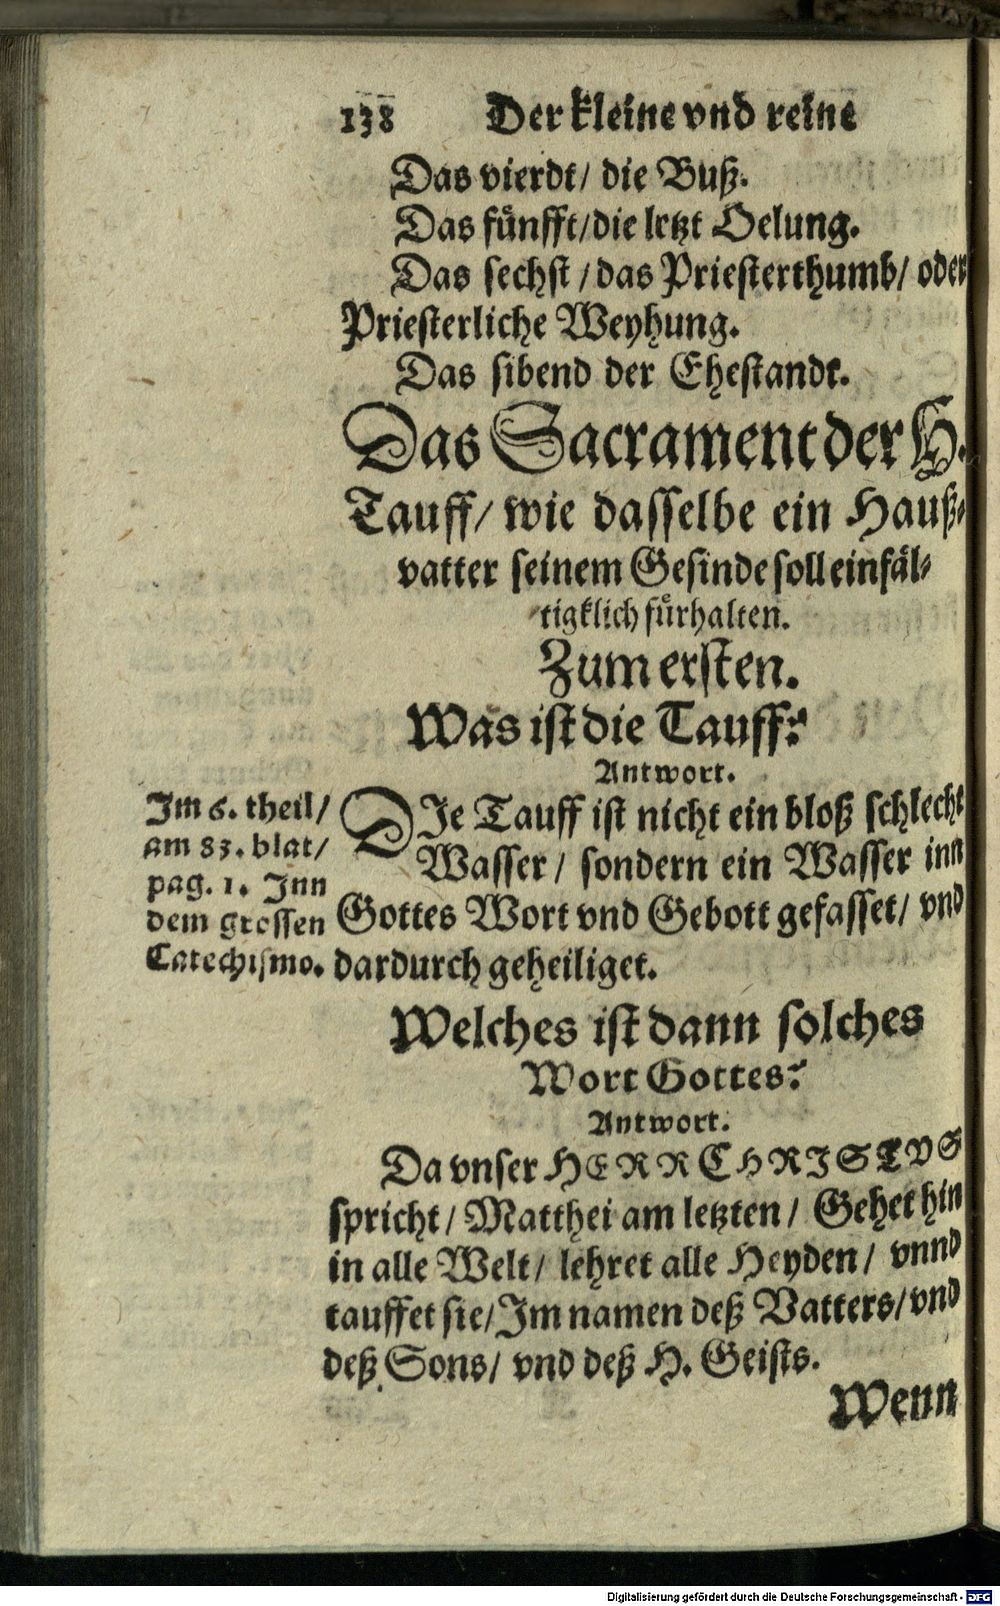 138 Der kleine vnd reine
Das vierdt/ die Buß.
Das fünfft/ die letzt Oelung.
Das sechst/ das Priesterthumb/ oder
Priesterliche Weyhung.
Das sibend der Ehestandt.
Das Sacrament der H.
Tauff/ wie dasselbe ein Hauß-
vatter seinem Gesinde soll einfäl-
tigklich fürhalten.
Zum ersten.
Was ist die Tauff?
Antwort.
DIe Tauff ist nicht ein bloß schlecht
Wasser/ sondern ein Wasser inn
Gottes Wort vnd Gebott gefasset/ vnd
dardurch geheiliget.
Im 6. theil/
am 83. blat/
pag. 1. Inn
dem grossen
Catechismo.
Welches ist dann solches
Wort Gottes?
Antwort.
Da vnser HERR CHRISTVS
spricht/ Matthei am letzten/ Gehet hin
in alle Welt/ lehret alle Heyden/ vnnd
tauffet sie/ Im namen deß Vatters/ vnd
deß Sons/ vnd deß H. Geists.
Wenn
Digitalisierung gefördert durch die Deutsche Forschungsgemeinschaft - DFG